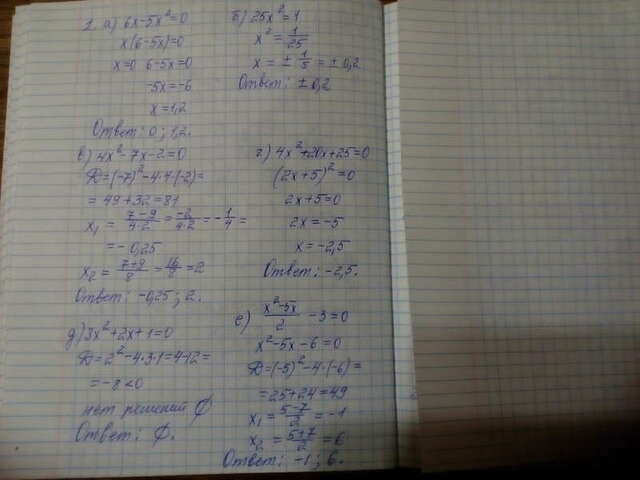 1. а) 6x-5x²=0
x(6-5x)=0
x=0 6-5x=0
-5x=-6
x=1,2
Ответ: 0; 1,2.
б) 25x²=1
x²=1/25
x=±1/5=±0,2
Ответ: ±0,2
в) 4x²-7x-2=0
D=(-7)²-4·4·(-2)=
=49+32=81
x₁=(7-9)/(4·2)=-2/(4·2)=-1/4=
=-0,25
x₂=(7+9)/8=16/8=2
Ответ: -0,25; 2.
г) 4x²+20x+25=0
(2x+5)²=0
2x+5=0
2x=-5
x=-2,5
Ответ: -2,5.
д) 3x²+2x+1=0
D=2²-4·3·1=4-12=
=-8<0
нет решений ∅
Ответ: ∅.
е) (x²-5x)/2-3=0
x²-5x-6=0
D=(-5)²-4·(-6)=
=25+24=49
x₁=(5-7)/2=-1
x₂=(5+7)/2=6
Ответ: -1; 6.